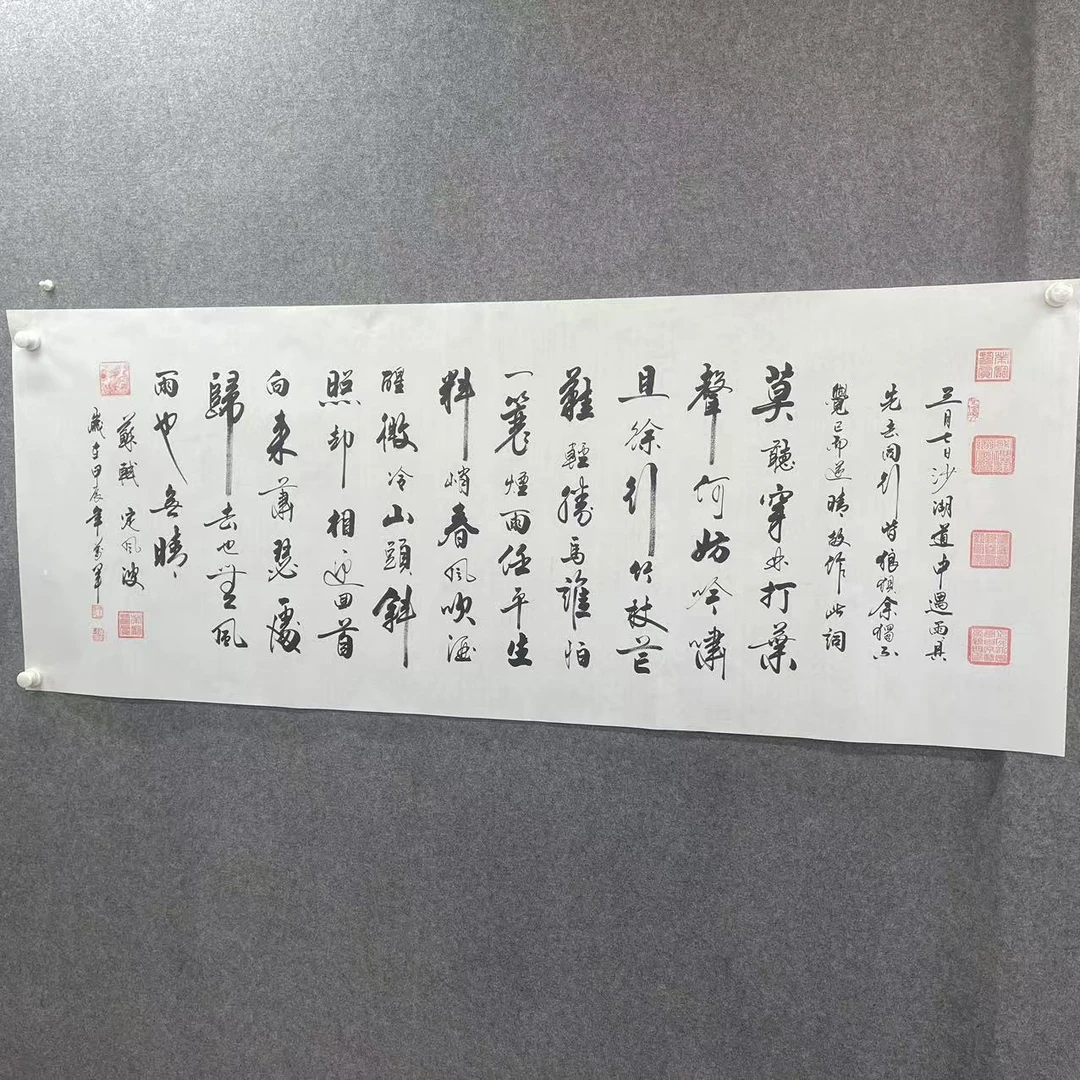 三月七日沙湖道中遇雨具
先去同行皆狼狽余獨不
覺已而遂晴故作此詞
莫聽穿林打葉
聲何妨吟嘯
且徐行竹杖芒
鞋輕勝馬誰怕
一蓑煙雨任平生
料峭春風吹酒
醒微冷山頭斜
照却相迎回首
向来蕭瑟處
歸去也無風
雨也無晴
蘇軾定風波
歲在甲辰年